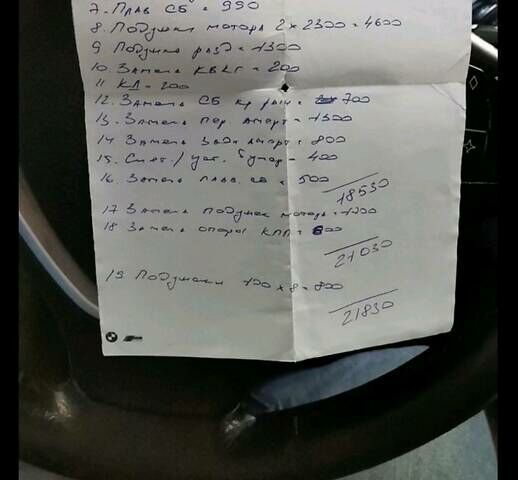 7. Плав СБ = 990
8. Подушки мотора 2 x 2300 = 4600
9 Подушка разд = 1300
10. Замена КВКГ = 200
11 КЛ = 200
12. Замена СБ кр рыч = 700
13. Замена пер аморт = 1300
14. Замена задн аморт = 800
15. Снят. / уст. = 400
16. Замена плав. сб = 500
18530
17 Замена подушек мотора = 1200
18. Замена опоры КПП = 600
21030
19. Подушки 100 x 8 = 800
21830